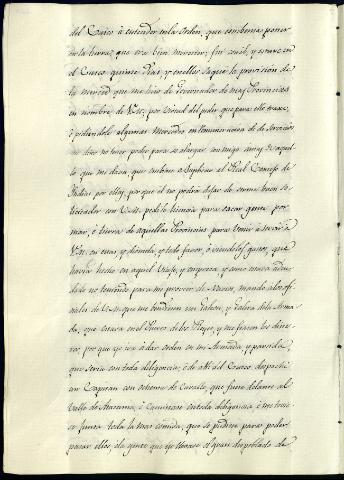 del Cuzco á entender en la Orden, que combenia poner
en la tierra, que era bien menester; fui con él, y estuve en
el Cuzco quince dias, y en ellos saqué la provision de
la merced que me hizo de Governador de estas Provincias
en nombre de V.M. por virtud del poder, que para ello traxo,
é pidiendole algunas Mercedes en remuneracion de servicios
me dixo no tener poder para se alargar conmigo mas de aquello
que me dava, que embiase á Suplicar al Real Consejo de
Indias por ellas, por que él no podria dejar de serme buen so-
licitador con V.M. pedile licencia para sacar gente por
mar, é tierra de aquellas Provincias para venir á servir á
V.M. en estas, y diómela, y todo favor, é viendo los gastos, que
havia hecho en aquel Viaje, y empresa, y como estava adeu-
dado no teniendo para me proveer de Navios, mando á los ofi-
ciales de V.M. que me vendiesen un Galeon, y Galera de la Arma-
da, que estava en el Puerto de los Reyes, y me fiasen los dine-
ros por que yo iva á dar orden en mi Armada, y partida,
que seria con toda diligencia, é de ahi del Cuzco despaché
un Capitan con ochenta de Cavallo, que fuese delante al
Valle de Atacama, é caminase con toda diligencia é me tuvie-
se junta toda la mas comida, que se pudiese para poder
pasar ellos, é la gente que yo llevase el gran despoblado de